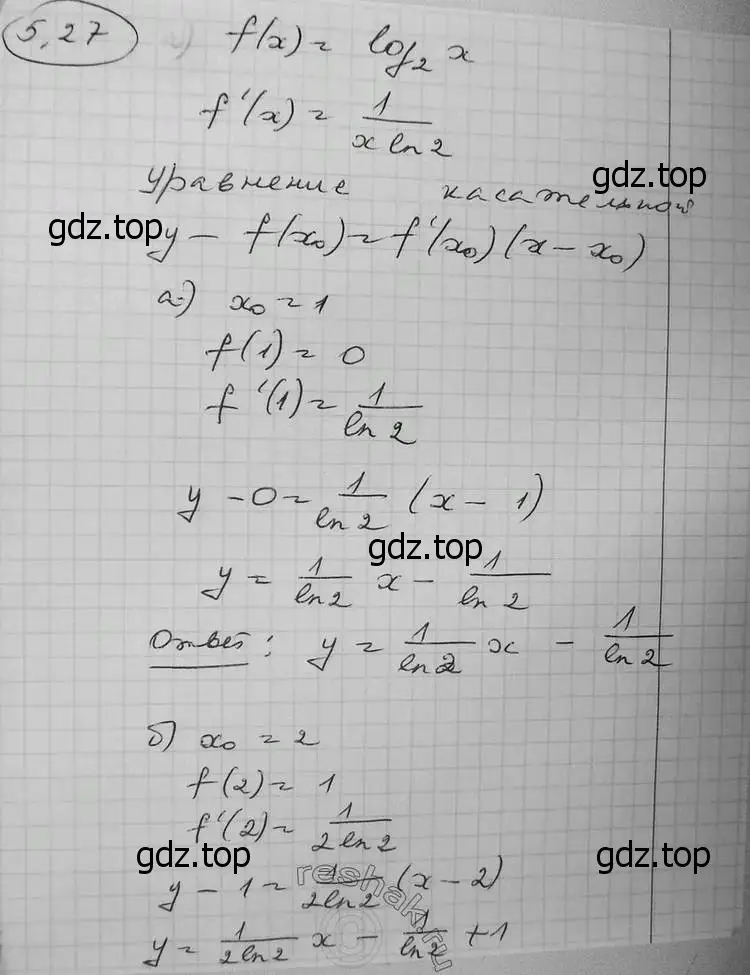 5.27 f(x) = log₂ x
f'(x) = 1/(x ln 2)
уравнение касательной
gdz.top
gdz.top
y - f(x₀) = f'(x₀)(x - x₀)
а) x₀ = 1
f(1) = 0
f'(1) = 1/(ln 2)
y - 0 = 1/(ln 2) (x - 1)
gdz.top
y = 1/(ln 2) x - 1/(ln 2)
Ответ: y = 1/(ln 2) x - 1/(ln 2)
б) x₀ = 2
f(2) = 1
f'(2) = 1/(2 ln 2)
gdz.top
gdz.top
y - 1 = 1/(2 ln 2) (x - 2)
reshak.ru
y = 1/(2 ln 2) x - 1/(ln 2) + 1